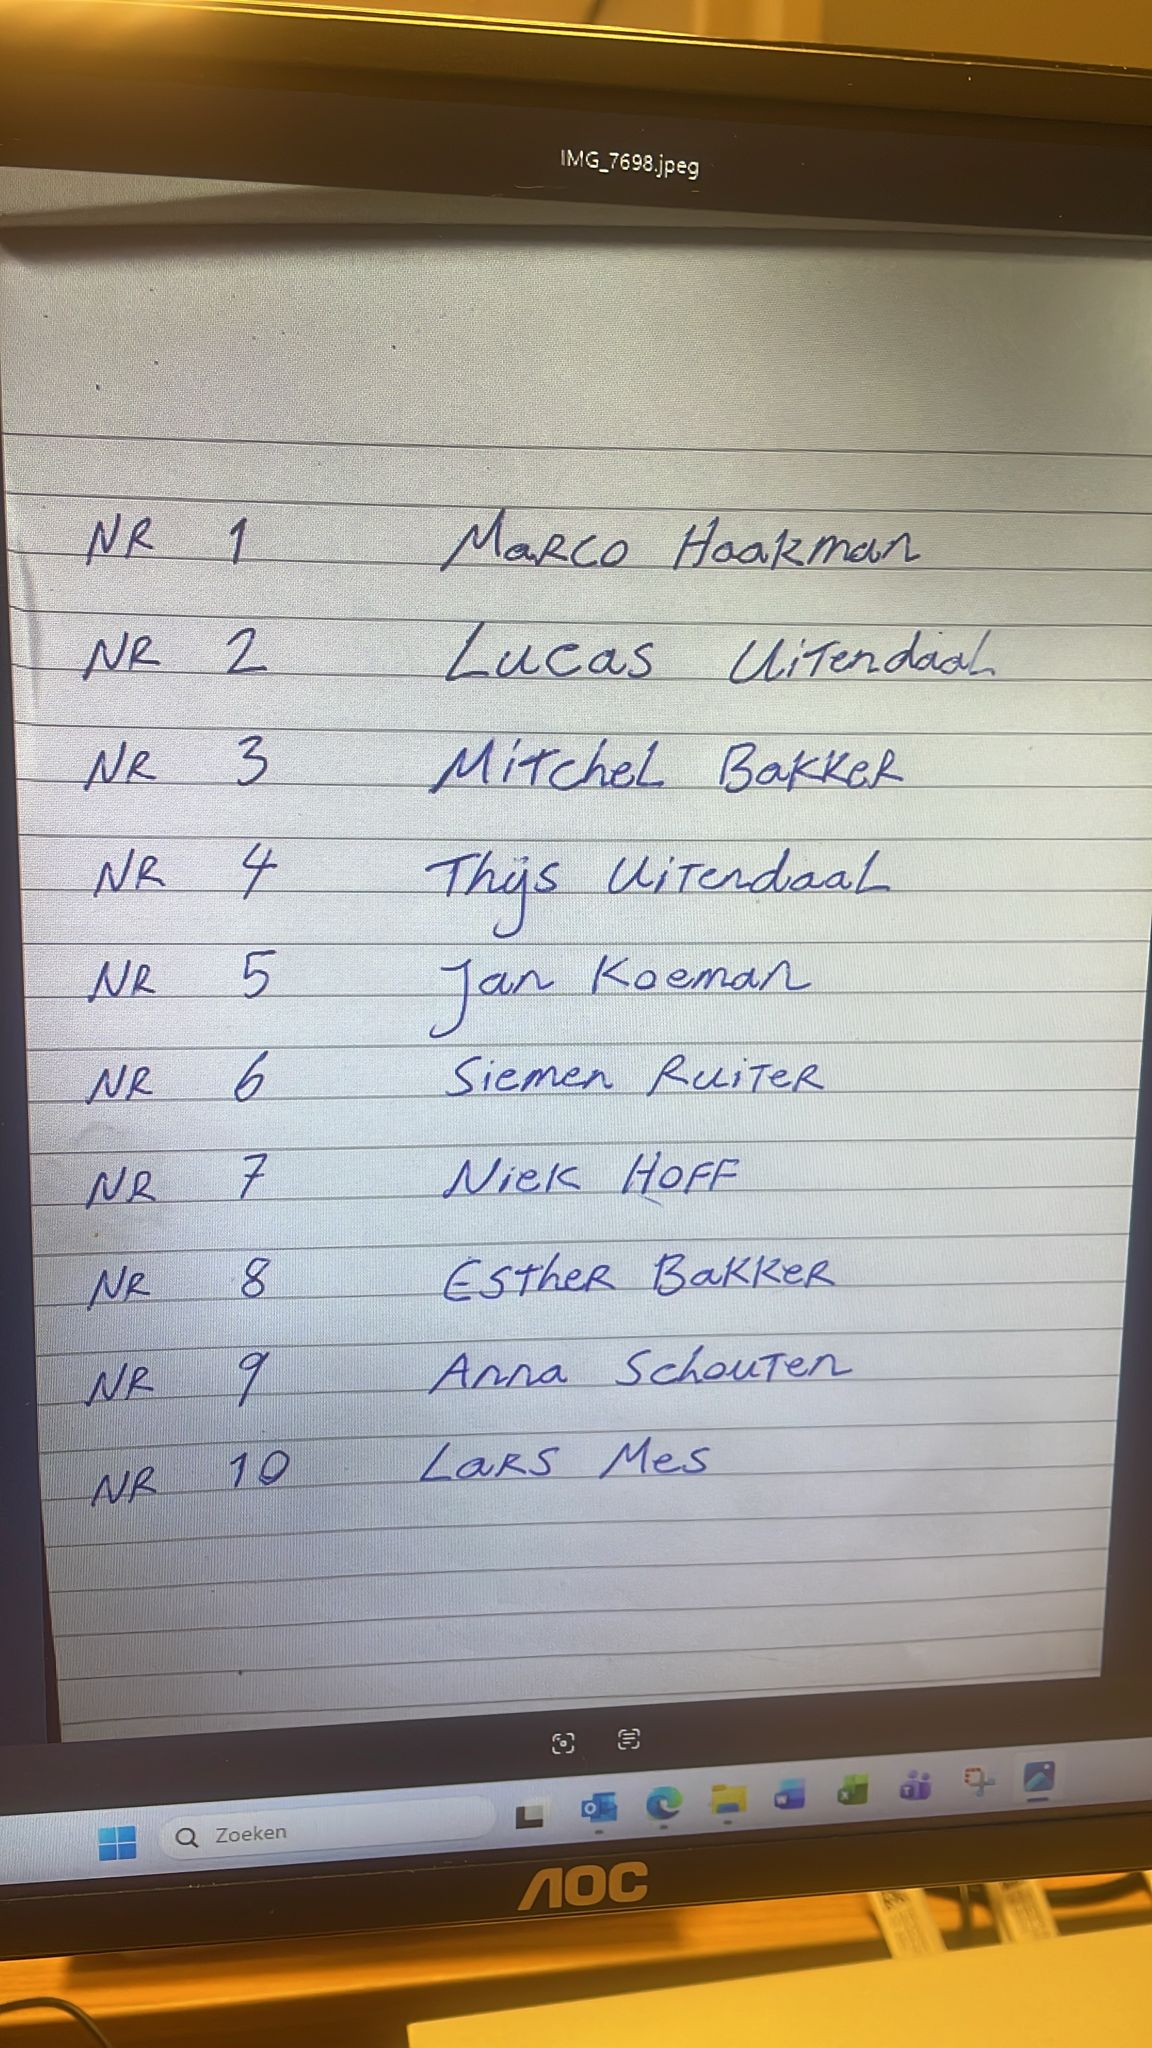 IMG_7698.jpeg
NR 1 Marco Haakman
NR 2 Lucas Uitendaal
NR 3 Mitchel Bakker
NR 4 Thijs Uitendaal
NR 5 Jan Koeman
NR 6 Siemen Ruiter
NR 7 Niek Hoff
NR 8 Esther Bakker
NR 9 Anna Schouten
NR 10 Lars Mes
Zoeken
AOC